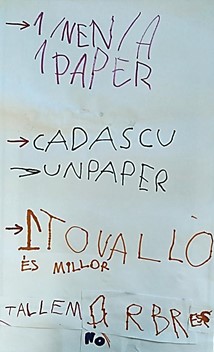 →1 NEN/A
1 PAPER
→CADASCU
→UN PAPER
→1 TOVALLÓ
ÉS MILLOR
TALLEM ARBRES
NO